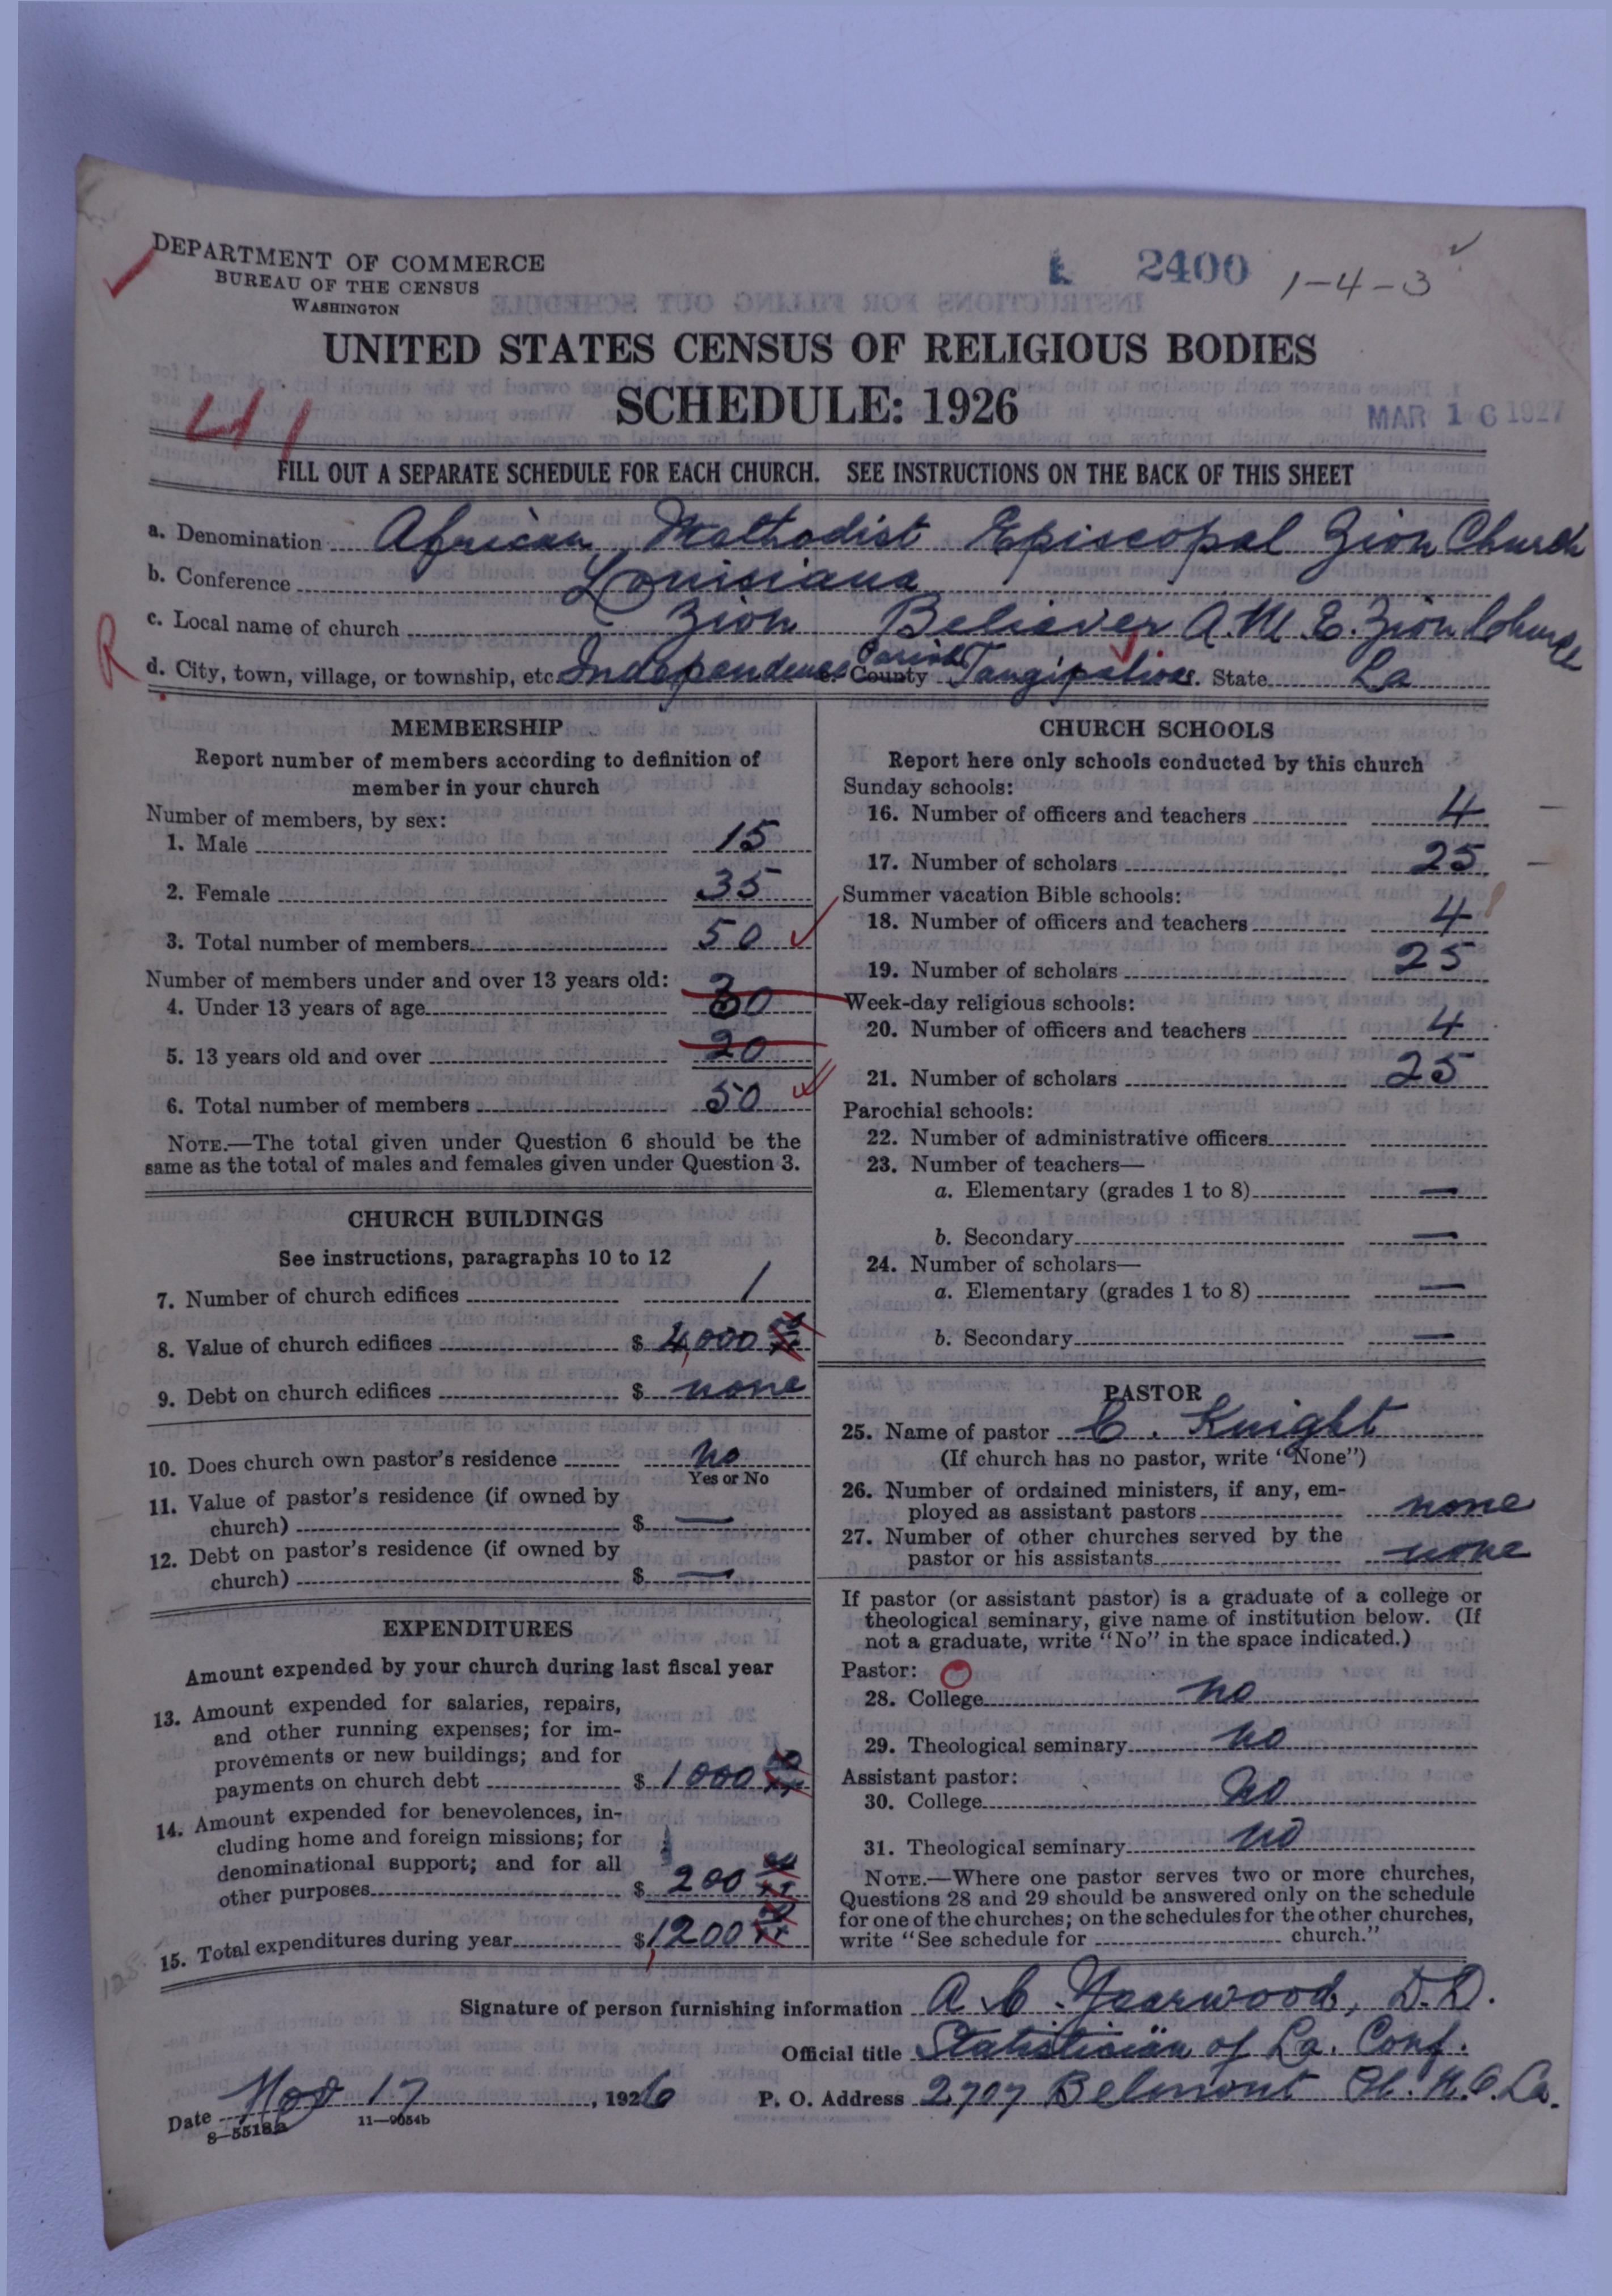 DEPARTMENT OF COMMERCE
BUREAU OF THE CENSUS
WASHINGTON
2400
1-4-3
UNITED STATES CENSUS OF RELIGIOUS BODIES
SCHEDULE: 1926
MAR 16 1927
41
FILL OUT A SEPARATE SCHEDULE FOR EACH CHURCH. SEE INSTRUCTIONS ON THE BACK OF THIS SHEET
a. Denomination African Methodist Episcopal Zion Church
b. Conference Louisiana
c. Local name of church Zion Believer A.M.E. Zion Church
R
d. City, town, village, or township, etc. Independence County Parish Tangipahoa. State La
MEMBERSHIP
Report number of members according to definition of
member in your church
Number of members, by sex:
1. Male 15
2. Female 35
3. Total number of members 50
Number of members under and over 13 years old:
4. Under 13 years of age 30
5. 13 years old and over 20
6. Total number of members 50
NOTE.—The total given under Question 6 should be the
same as the total of males and females given under Question 3.
CHURCH BUILDINGS
See instructions, paragraphs 10 to 12
7. Number of church edifices 1
8. Value of church edifices $ 4,000
9. Debt on church edifices $ none
10. Does church own pastor's residence no
Yes or No
11. Value of pastor's residence (if owned by
church) $ —
12. Debt on pastor's residence (if owned by
church) $ —
EXPENDITURES
Amount expended by your church during last fiscal year
13. Amount expended for salaries, repairs,
and other running expenses; for im-
provements or new buildings; and for
payments on church debt $ 1000
14. Amount expended for benevolences, in-
cluding home and foreign missions; for
denominational support; and for all
other purposes $ 200
15. Total expenditures during year $ 1,200
CHURCH SCHOOLS
Report here only schools conducted by this church
Sunday schools:
16. Number of officers and teachers 4
17. Number of scholars 25
Summer vacation Bible schools:
18. Number of officers and teachers 4
19. Number of scholars 25
Week-day religious schools:
20. Number of officers and teachers 4
21. Number of scholars 25
Parochial schools:
22. Number of administrative officers
23. Number of teachers—
a. Elementary (grades 1 to 8) —
b. Secondary —
24. Number of scholars—
a. Elementary (grades 1 to 8) —
b. Secondary —
PASTOR
25. Name of pastor C. Knight
(If church has no pastor, write "None")
26. Number of ordained ministers, if any, em-
ployed as assistant pastors none
27. Number of other churches served by the
pastor or his assistants none
If pastor (or assistant pastor) is a graduate of a college or
theological seminary, give name of institution below. (If
not a graduate, write "No" in the space indicated.)
Pastor:
28. College no
29. Theological seminary no
Assistant pastor:
30. College no
31. Theological seminary no
NOTE.—Where one pastor serves two or more churches,
Questions 28 and 29 should be answered only on the schedule
for one of the churches; on the schedules for the other churches,
write "See schedule for church."
Signature of person furnishing information A. C. Yearwood, D.D.
Official title Statistician of La. Conf.
Date Nov 17, 1926 P. O. Address 2707 Belmont Pl. N.O. La.
8—5518a 11—9054b